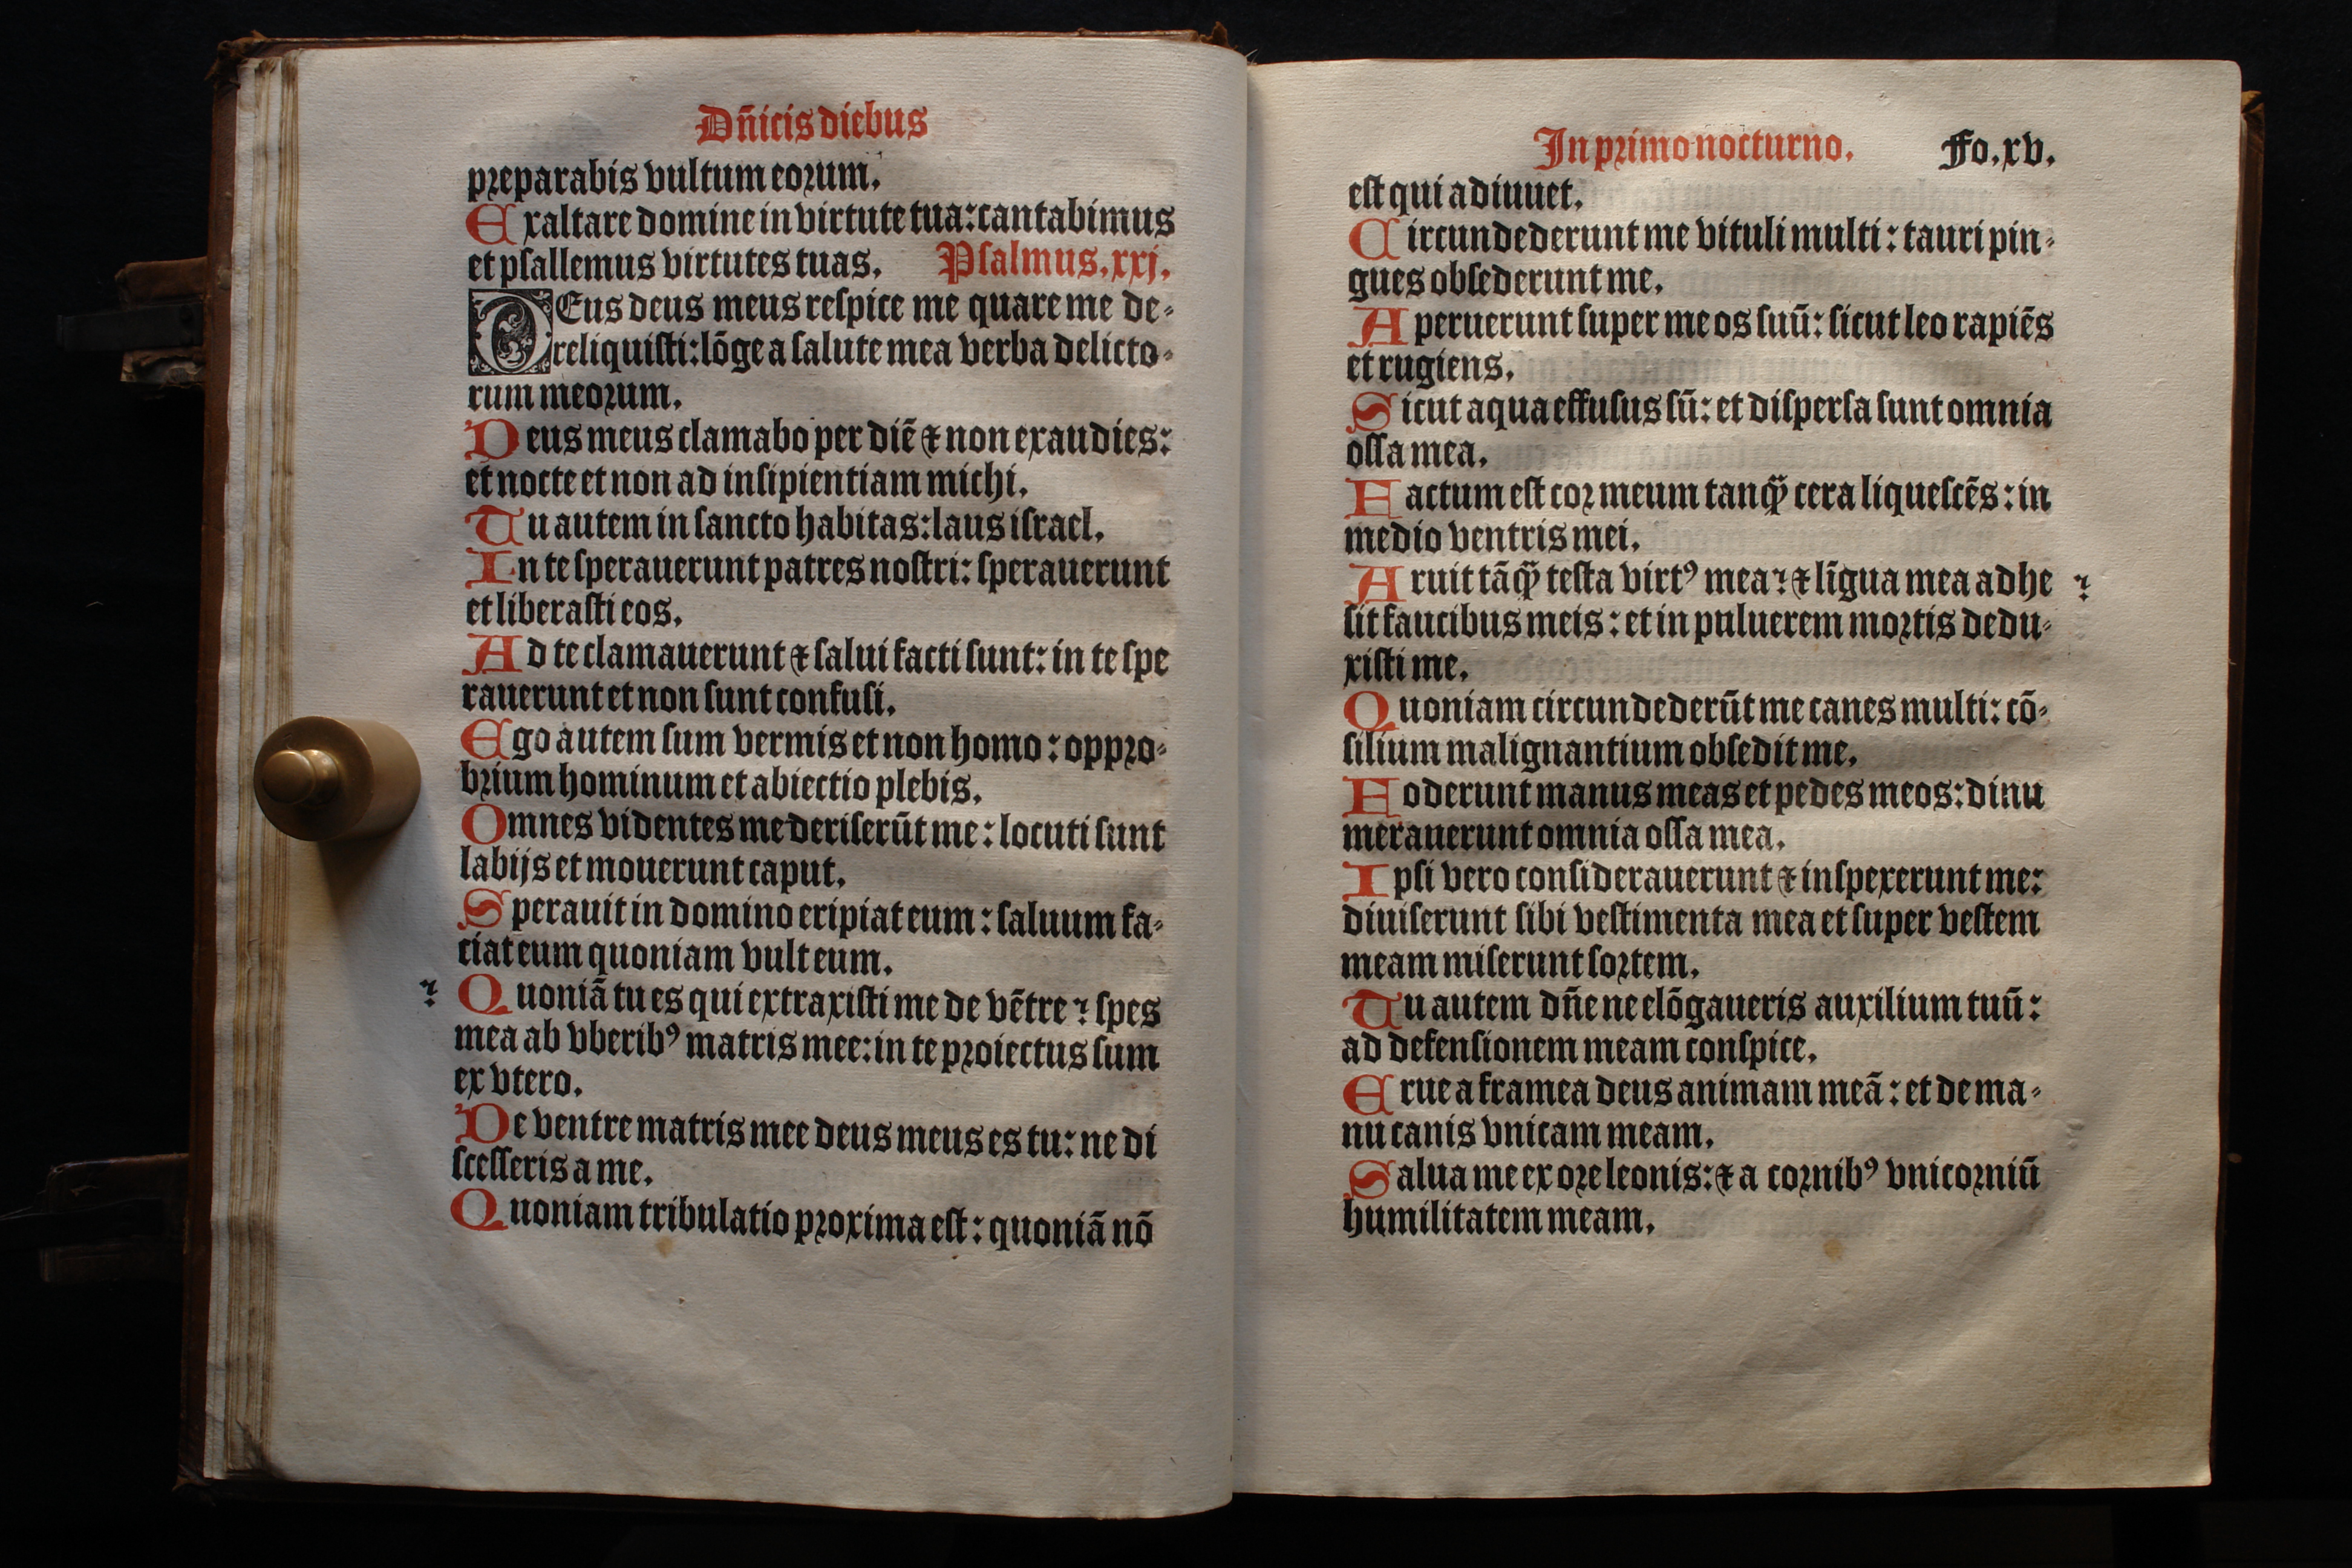 Dñicis diebus
preparabis vultum eorum.
Exaltare domine in virtute tua: cantabimus
et psallemus virtutes tuas. Psalmus. xxj.
DEus deus meus respice me quare me de-
reliquisti: lõge a salute mea verba delicto-
rum meorum.
Deus meus clamabo per diẽ ⁊ non exaudies:
et nocte et non ad insipientiam michi.
Tu autem in sancto habitas: laus israel.
In te sperauerunt patres nostri: sperauerunt
et liberasti eos.
Ad te clamauerunt ⁊ salui facti sunt: in te spe
rauerunt et non sunt confusi.
Ego autem sum vermis et non homo: oppro-
brium hominum et abiectio plebis.
Omnes videntes me deriserũt me: locuti sunt
labijs et mouerunt caput.
Sperauit in domino eripiat eum: saluum fa-
ciat eum quoniam vult eum.
Quoniã tu es qui extraxisti me de vẽtre ⁊ spes
mea ab vberibꝰ matris mee: in te proiectus sum
ex vtero.
De ventre matris mee deus meus es tu: ne di
scesseris a me.
Quoniam tribulatio proxima est: quoniã nõ
In primo nocturno. Fo. xv.
est qui adiuuet.
Circundederunt me vituli multi: tauri pin-
gues obsederunt me.
Aperuerunt super me os suũ: sicut leo rapiẽs
et rugiens.
Sicut aqua effusus sũ: et dispersa sunt omnia
ossa mea.
Factum est cor meum tanq̃ cera liquescẽs: in
medio ventris mei.
Aruit tãq̃ testa virtꝰ mea: ⁊ lĩgua mea adhe
sit faucibus meis: et in puluerem mortis dedu-
xisti me.
Quoniam circundederũt me canes multi: cõ-
silium malignantium obsedit me.
Foderunt manus meas et pedes meos: dinu
merauerunt omnia ossa mea.
Ipsi vero considerauerunt ⁊ inspexerunt me:
diuiserunt sibi vestimenta mea et super vestem
meam miserunt sortem.
Tu autem dñe ne elõgaueris auxilium tuũ:
ad defensionem meam conspice.
Erue a framea deus animam meã: et de ma-
nu canis vnicam meam.
Salua me ex ore leonis: ⁊ a cornibꝰ vnicorniũ
humilitatem meam.